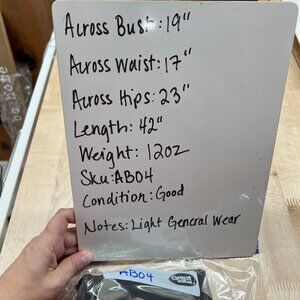 Across Bust: 19"
Across Waist: 17"
Across Hips: 23"
Length: 42"
Weight: 12oz
Sku: AB04
Condition: Good
Notes: Light General Wear
AB04